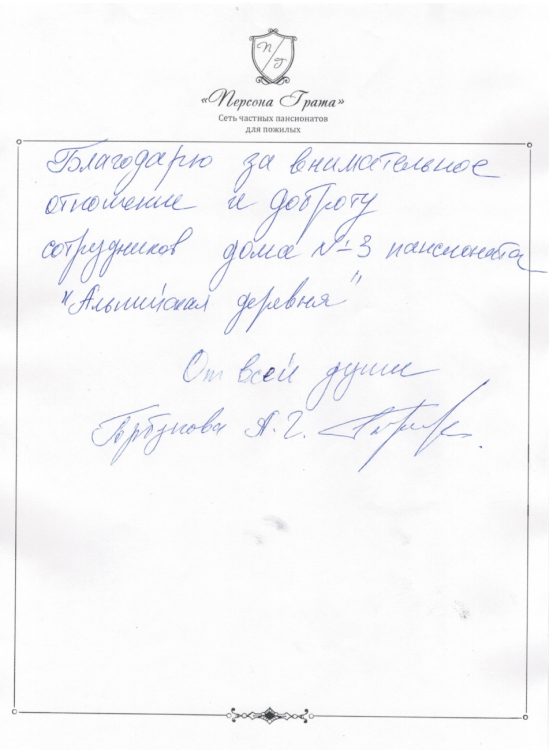 П Г
«Персона Грата»
Сеть частных пансионатов
для пожилых
Благодарю за внимательное
отношение и доброту
сотрудников дома №3 пансионата
"Альпийская деревня"
От всей души
Горбунова А. Г.